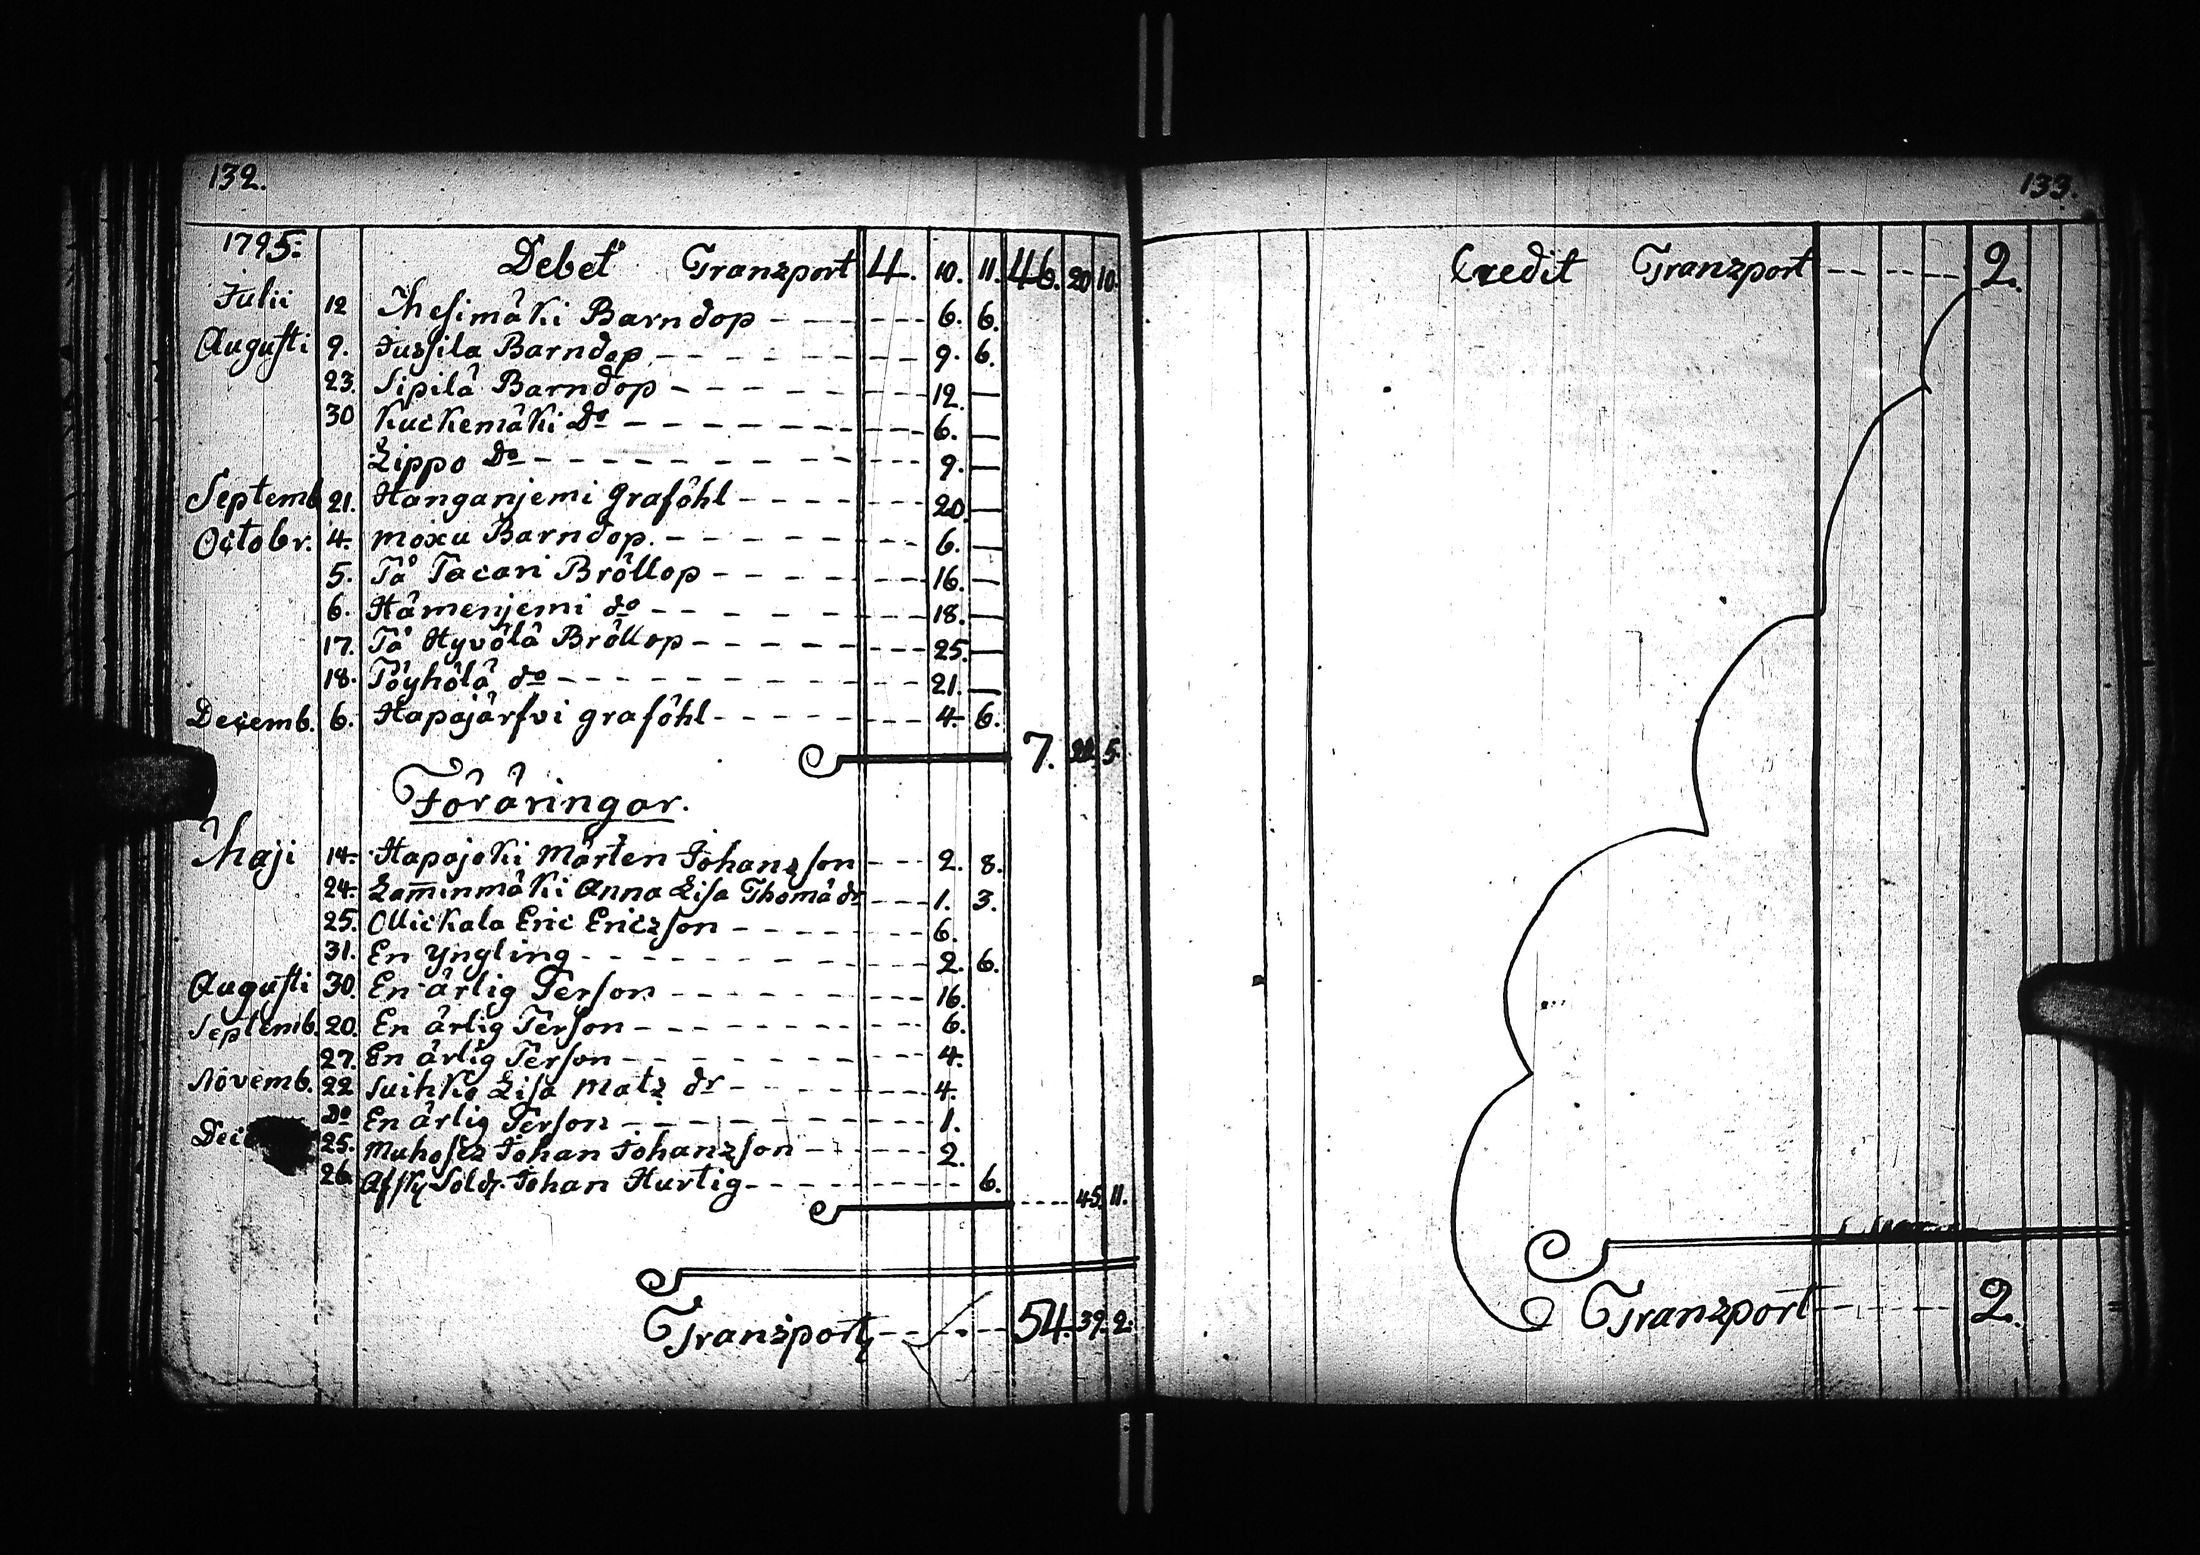 132.
1795: Debet Transport 4. 10. 11. 46. 20 10.
Julii 12 Ihesimäki Barndop 6. 6.
Augusti 9. Jussila Barndop 9. 6.
23. Sipilä Barndop 12. —
30 Kuckemäki Do 6. —
Lippo Do 9. —
Septemb 21. Hanganjemi graföhl 20. —
Octobr. 4. Moxu Barndop. 6. —
5. På Pacari Bröllop 16. —
6. Hämenjemi do 18. —
17. På Hyvölä Bröllop 25. —
18. Pöyhölä do 21. —
Decemb. 6. Hapajärfvi graföhl 4. 6.
7. 22. 5.
Föräringar.
Maji 14. Hapajoki Mårten Johanzson 2. 8.
24. Lamminmäki Anna Lisa Thomä dr 1. 3.
25. Ollickala Eric Ericzson 6.
31. En Yngling 2. 6.
Augusti 30. En ärlig Person 16.
Septemb. 20. En ärlig Person 6.
27. En ärlig Person 4.
Novemb. 22 Suihko Lisa Matz dr 4.
Do En ärlig Person 1.
Dec 25. Johan Johanzson 2.
26. Afsky Soldr Johan Hurtig 6.
45. 11.
Transport 54. 39. 2.
133.
Credit Transport 2.
Transport 2.